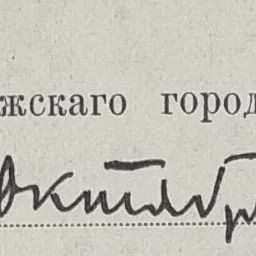 жскаго город
Октябр